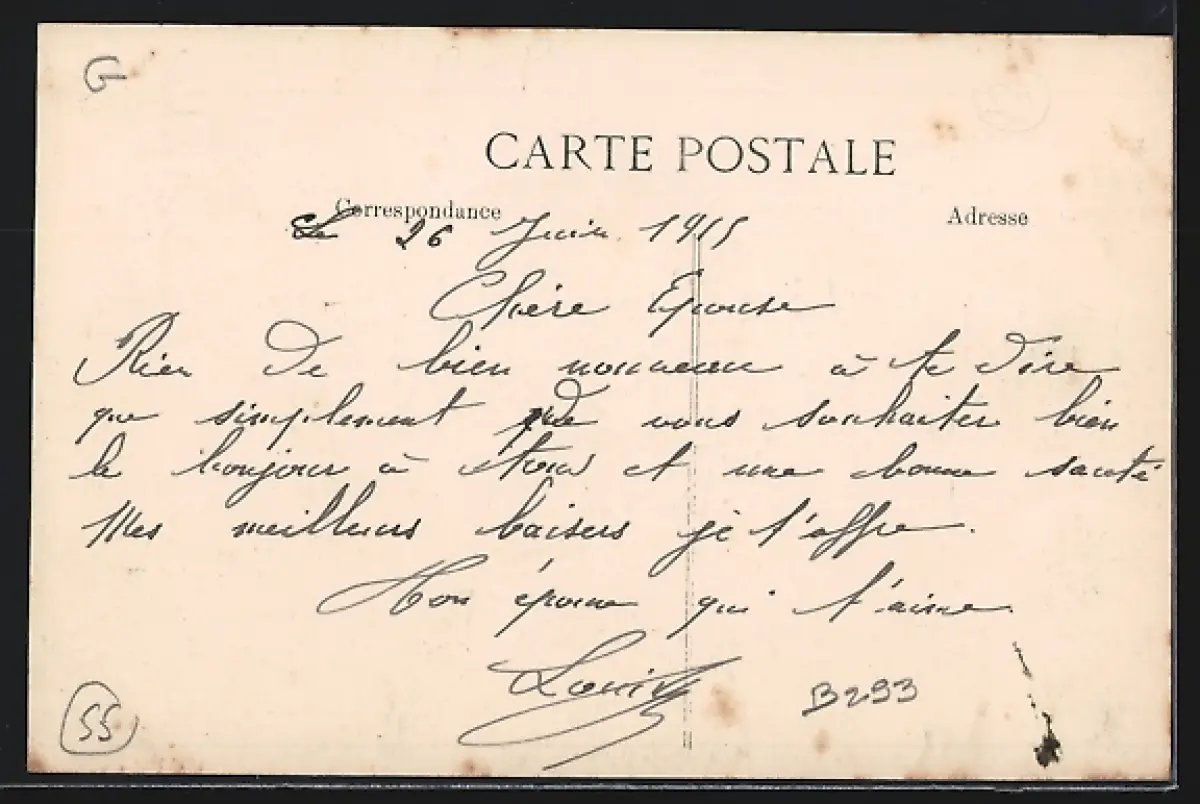 G
CARTE POSTALE
Correspondance
Adresse
Le 26 Juin 1915
Chère Epouse
Rien de bien nouveau à te dire
que simplement de vous souhaiter bien
le bonjour à tous et une bonne santé
Mes meilleurs baisers je t'offre.
Ton époux qui t'aime.
Louis
B293
55